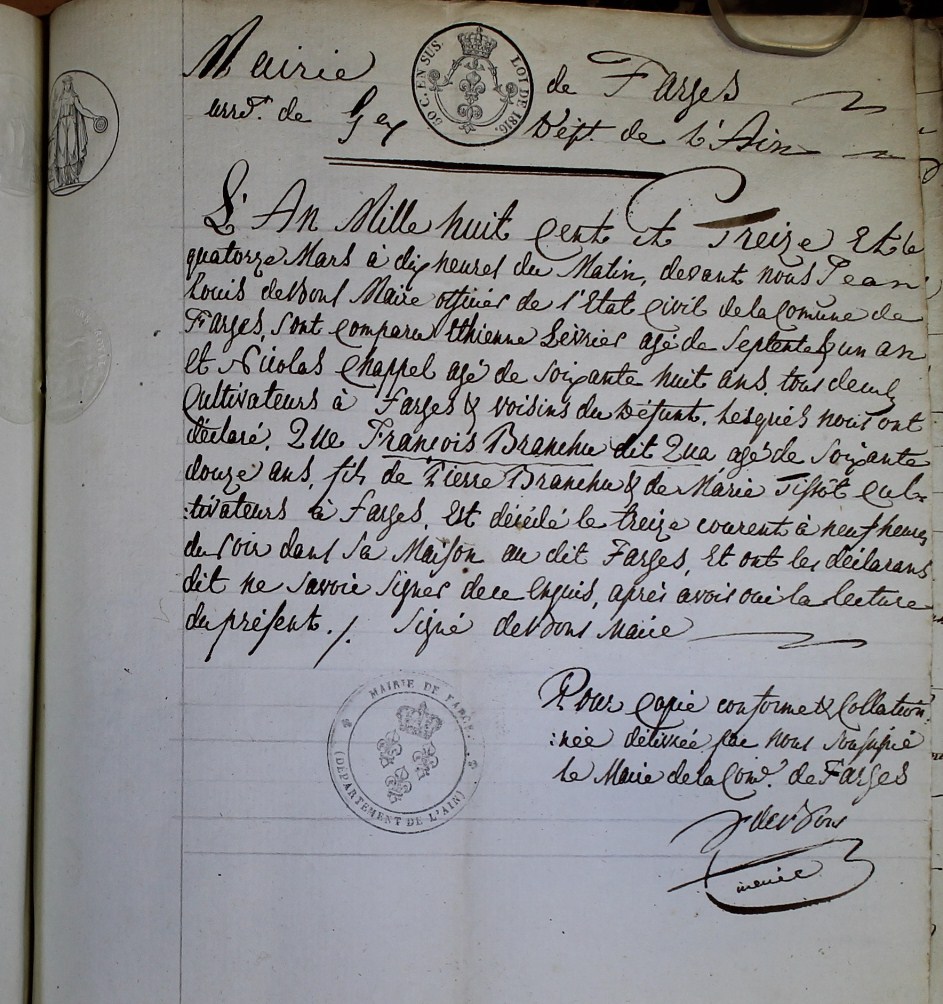 Mairie de Farges
50 C. EN SUS. LOI DE 1816.
arrt. de Gex Dépt. de L'Ain
L'An Mille huit Cent et Treize Et le
quatorze Mars à dix heures du Matin, devant nous Jean
Louis Maire officier de l'Etat Civil de la Comune de
Farges, sont comparu Ethienne Levrier agé de Septente & un an
et Nicolas Chappel agé de soixante huit ans, tous deux
Cultivateurs à Farges & voisins du Défunt. Lesquels nous ont
déclaré, Que François Branchu dit Qua agé de Soixante
douze ans, fils de Pierre Branchu & de Marie Tissot cul-
:tivateurs à Farges, Est décédé le treize courent à neuf heures
du soir dans sa Maison au dit Farges, Et ont les déclarans
dit ne savoir signer de ce Enquis, après avoir oui la lecture
du présent ./. Signé Maire
Pour Copie conforme & Collation
:née délivrée par nous soussigné
le Maire de la Com.e de Farges
MAIRIE DE FARGES
(DÉPARTEMENT DE L'AIN)